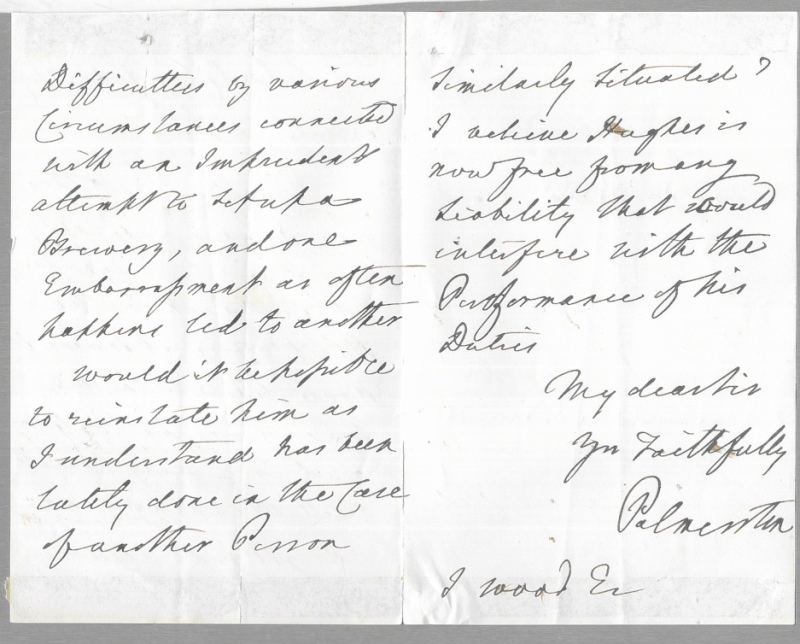 Difficulties by various
Circumstances connected
with an Imprudent
attempt to Set up a
Brewery, and one
Embarrassment as often
happens led to another
would it be possible
to reinstate him as
I understand has been
lately done in the Case
of another Person
Similarly Situated?
I believe Hughes is
now free from any
Liability that would
interfere with the
Performance of his
Duties
My dear Sir
Yrs Faithfully
Palmerston
I wood Er